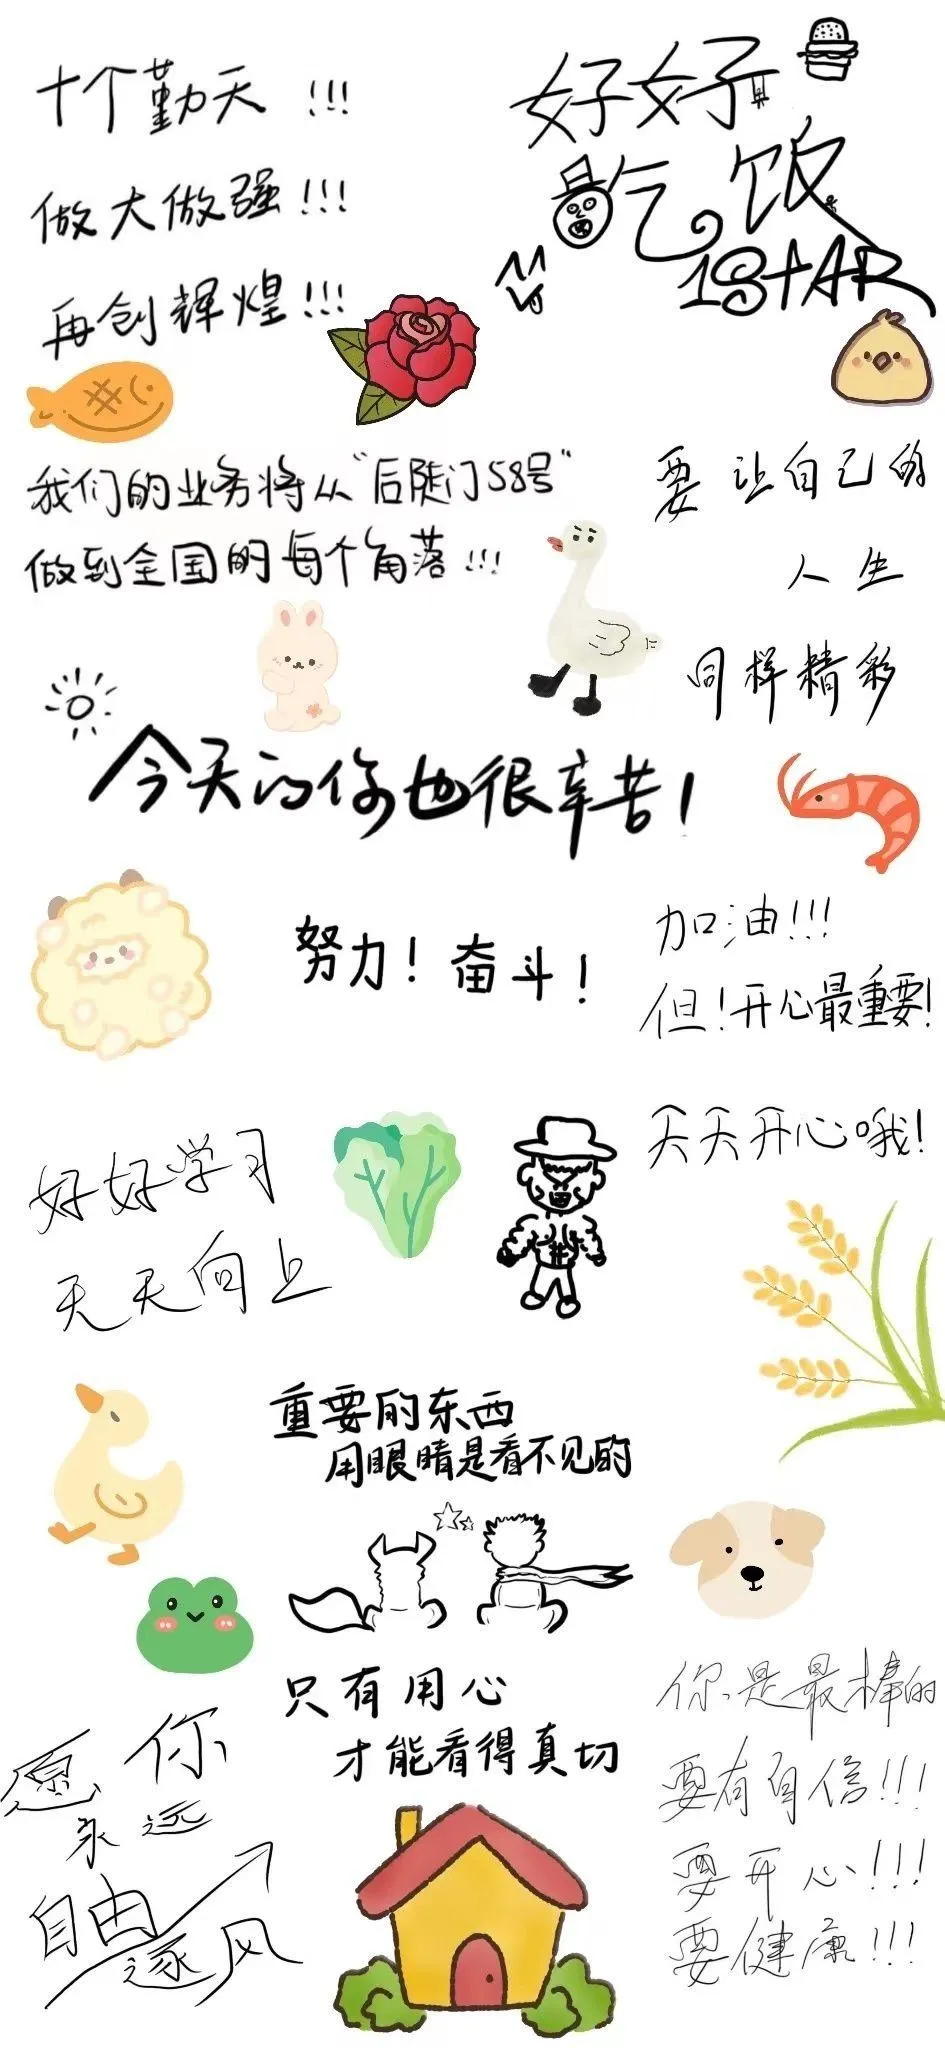 十个勤天!!!
做大做强!!!
再创辉煌!!!
好好
吃饭
1StAR
我们的业务将从“后陡门58号”
做到全国的每个角落!!!
要让自己的
人生
同样精彩
今天的你也很辛苦!
努力!奋斗!
加油!!!
但!开心最重要!
天天开心哦!
好好学习
天天向上
重要的东西
用眼睛是看不见的
只有用心
才能看得真切
愿你
永远
自由
逐风
你是最棒的
要有自信!!!
要开心!!!
要健康!!!